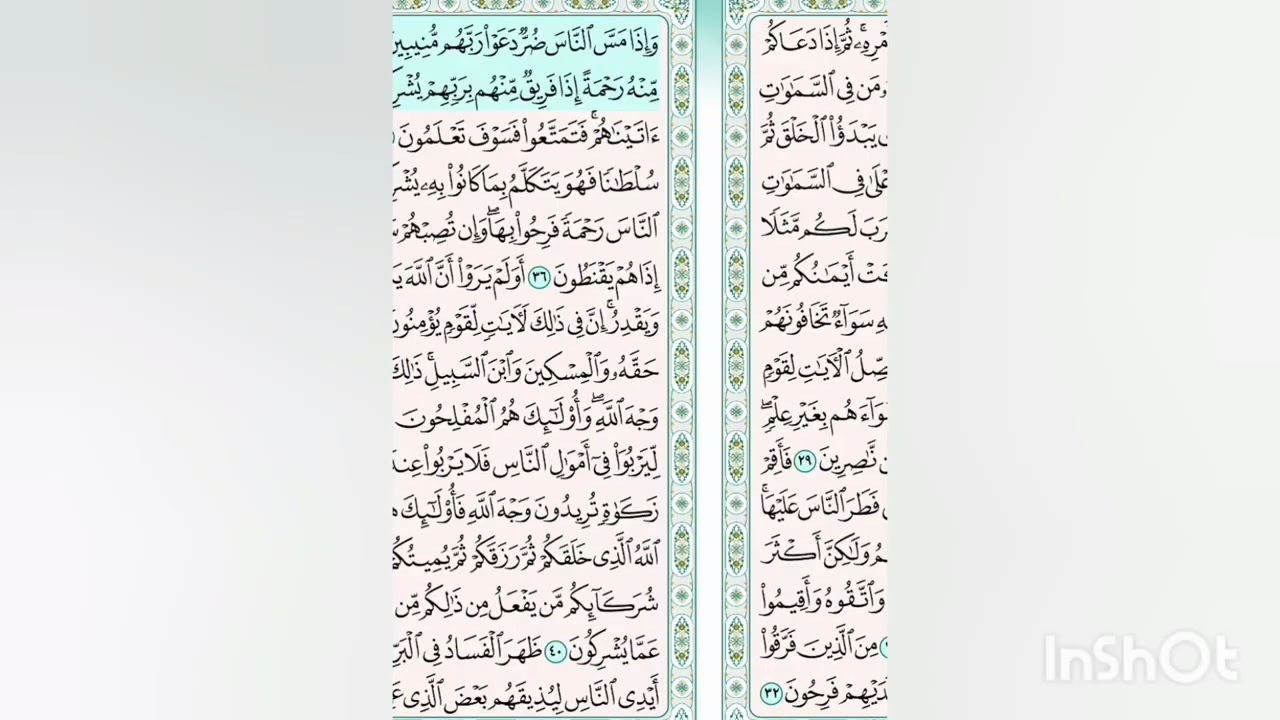 ثُمَّ إِذَا دَعَاكُمْ
مَن فِي ٱلسَّمَٰوَٰتِ
يَبْدَؤُا۟ ٱلْخَلْقَ ثُمَّ
فِي ٱلسَّمَٰوَٰتِ
لَكُم مَّثَلًا
أَيْمَٰنُكُم مِّن
سَوَآءٌ تَخَافُونَهُمْ
ٱلْأَيَٰتِ لِقَوْمٍ
بِغَيْرِ عِلْمٍۖ
نَّٰصِرِينَ ٢٩ فَأَقِمْ
فَطَرَ ٱلنَّاسَ عَلَيْهَاۚ
وَلَٰكِنَّ أَكْثَرَ
وَٱتَّقُوهُ وَأَقِيمُوا۟
مِنَ ٱلَّذِينَ فَرَّقُوا۟
فَرِحُونَ ٣٢
وَإِذَا مَسَّ ٱلنَّاسَ ضُرٌّ دَعَوْا۟ رَبَّهُم
مِّنْهُ رَحْمَةً إِذَا فَرِيقٌ مِّنْهُم بِرَبِّهِمْ
ءَاتَيْنَٰهُمْۚ فَتَمَتَّعُوا۟ فَسَوْفَ تَعْلَمُونَ
سُلْطَٰنًا فَهُوَ يَتَكَلَّمُ بِمَا كَانُوا۟ بِهِۦ
ٱلنَّاسَ رَحْمَةً فَرِحُوا۟ بِهَاۖ وَإِن تُصِبْهُمْ
إِذَا هُمْ يَقْنَطُونَ ٣٦ أَوَلَمْ يَرَوْا۟ أَنَّ ٱللَّهَ
وَيَقْدِرُۚ إِنَّ فِي ذَٰلِكَ لَأَيَٰتٍ لِّقَوْمٍ يُؤْمِنُونَ
حَقَّهُۥ وَٱلْمِسْكِينَ وَٱبْنَ ٱلسَّبِيلِۚ ذَٰلِكَ
وَجْهَ ٱللَّهِۖ وَأُو۟لَٰٓئِكَ هُمُ ٱلْمُفْلِحُونَ
لِّيَرْبُوَا۟ فِيٓ أَمْوَٰلِ ٱلنَّاسِ فَلَا يَرْبُوا۟ عِندَ
زَكَوٰةٍ تُرِيدُونَ وَجْهَ ٱللَّهِ فَأُو۟لَٰٓئِكَ
ٱللَّهُ ٱلَّذِي خَلَقَكُمْ ثُمَّ رَزَقَكُمْ ثُمَّ يُمِيتُكُمْ
شُرَكَآئِكُم مَّن يَفْعَلُ مِن ذَٰلِكُم مِّن
عَمَّا يُشْرِكُونَ ٤٠ ظَهَرَ ٱلْفَسَادُ فِي ٱلْبَرِّ
أَيْدِي ٱلنَّاسِ لِيُذِيقَهُم بَعْضَ ٱلَّذِي
InShOt